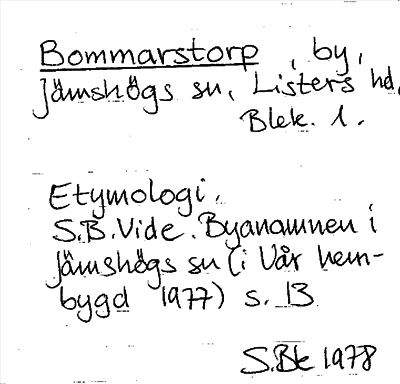 Bommarstorp, by,
Jämshögs sn, Listers hd,
Blek. l.
Etymologi.
S.B.Vide. Byanamnen i
Jämshögs sn (i Vår hem-
bygd 1977) s. 13
S.Bk 1978